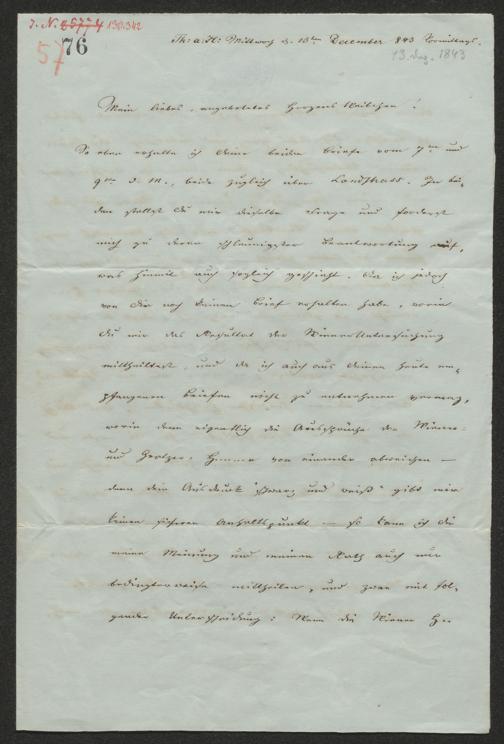 J. N. 65774 130.342
57
76
Th: a/H: Mittwoch d. 13ten December 843 Vormittags.
13. Dez. 1843
Mein liebes, angebetetes Herzens Weibchen!
So eben erhalte ich deine beiden Briefe vom 7ten und
9ten d. M., beide zugleich über Landstraß. In bei-
den stellst du mir dieselbe Frage und forderst
mich zu deren schleunigster Beantwortung auf,
was hiemit auch sogleich geschieht. Da ich jedoch
von dir noch keinen Brief erhalten habe, worin
du mir das Resultat der Wiener Untersuchung
mittheiltest, und da ich auch aus deinen heute em-
pfangenen Briefen nicht zu entnehmen vermag,
worin denn eigentlich die Aussprüche der Wiener-
und Gratzer- Herren von einander abweichen –
denn dein Ausdruck "schwarz und weiß" gibt mir
keinen sicheren Anhaltspunkt – so kann ich dir
meine Meinung und meinen Rath auch nur
bedingterweise mittheilen, und zwar mit fol-
gender Unterscheidung: Wenn die Wiener He-